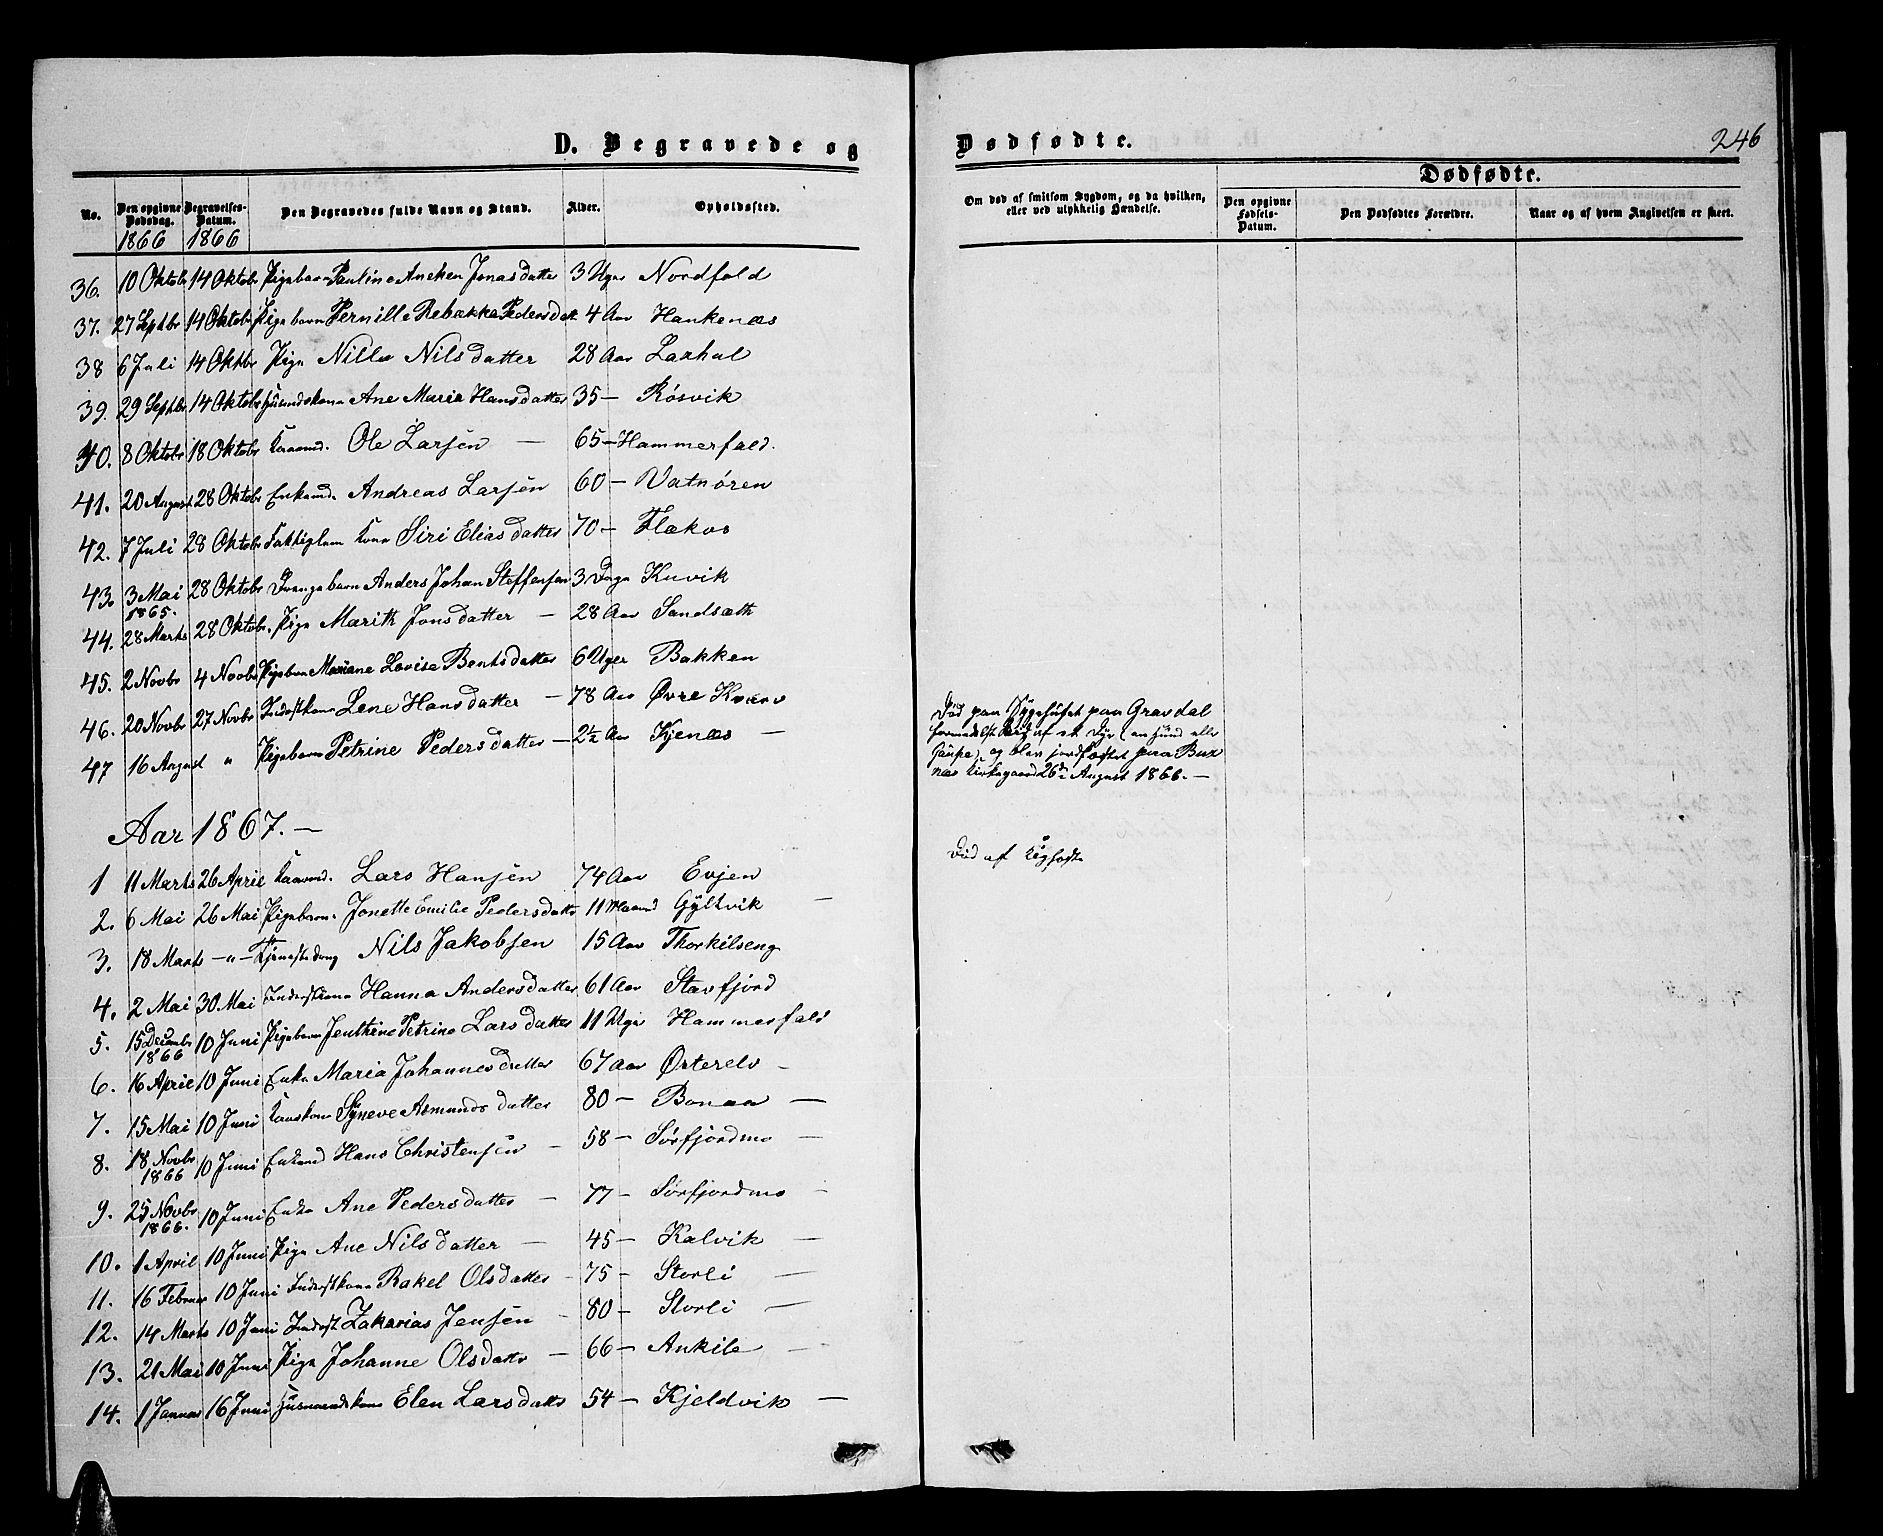 D. Begravede og
Dødfødte.
246
No.
Den opgivne Dødsdag. 1866
Begravelses-Datum. 1866
Den Begravedes fulde Navn og Stand.
Alder.
Opholdssted.
Om død af smitsom Sygdom, og da hvilken, eller ved ulykkelig Hændelse.
Dødfødte.
Den opgivne Fødsels-Datum.
Den Dødfødtes Forældre.
Naar og af hvem Angivelsen er skeet.
36. 10 Oktobr 14 Oktobr Pigebarn Pauline Aneken Jonasdatter 3 Uger Nordfold
37. 27 Septbr 14 Oktobr Pigebarn Pernille Rebække Pedersdatt 4 Aar Hankenæs
38 6 Juli 14 Oktbr Pige Nilla Nilsdatter 28 Aar Laxhol
39. 29 Septbr 14 Oktobr Husmdskone Ane Maria Hansdatter 35 — Røsvik
40. 8 Oktobr 18 Oktobr Kaarmd. Ole Larsen — 65 — Hammerfald.
41. 20 August 28 Oktobr Enkemd. Andreas Larsen 60 — Vatnøren
42. 7 Juli 28 Oktobr Fattiglem Kone Siri Eliasdatter 70 — Flækos
43. 3 Mai 1865. 28 Oktobr Drengebarn Anders Johan Steffensen 3 Dage Kuvik
44. 28 Marts 28 Oktobr. Pige Marith Jonsdatter — 28 Aar Sandsæth
45. 2 Novbr 4 Novbr Pigebarn Mariane Lovise Bentsdatter 6 Uger Bakken
46. 20 Novbr 27 Novbr Inderstkone Lene Hansdatter — 78 Aar Øvre Kværv
47 16 August " Pigebarn Petrine Pedersdatter — 2½ Aar Kjenæs —
Død paa Sygehuset paa Gravdal
formedelst Bid af et Dyr (en Hund eller
Gaupe), og blev jordfæstet paa Bux
næs Kirkegaard 26de August 1866. —
Aar 1867. —
1 11 Marts 26 April Kaarmd. Lars Hansen 74 Aar Evjen
Død af
2. 6 Mai 26 Mai Pigebarn. Jonette Emilie Pedersdatter 11 Maaned Gyltvik —
3. 18 Marts — " — Tjenestedreng Nils Jakobsen 15 Aar Thorkilseng
4. 2 Mai 30 Mai Inderstkone Hanna Andersdatter 61 Aar Stavfjord
5. 15 Decembr 1866 10 Juni Pigebarn Jenthrine Petrine Larsdatter 11 Uger Hammerfald
6. 16 April 10 Juni Enke Maria Johannesdatter 67 Aar Østerelv —
7. 15 Mai 10 Juni Kaarkone Syneve Asmundsdatter 80 — Bonaa —
8. 18 Novbr 1866 10 Juni Enkemd Hans Christensen — 58 — Sørfjordmo —
9. 25 Novbr 1866. 10 Juni Enke Ane Pedersdatter — 77 — Sørfjordmo —
10. 1 April 10 Juni Pige Ane Nilsdatter — 45 — Kalvik —
11. 16 Februar 10 Juni Inderstkone Rakel Olsdatter — 75 — Storli —
12. 14 Marts 10 Juni Inderst Zakarias Jensen — 80 — Storli —
13. 21 Mai 10 Juni Pige Johanne Olsdatter — 66 — Ankile —
14. 1 Januar 16 Juni Husmandskone Elen Larsdatter 54 — Kjeldvik —